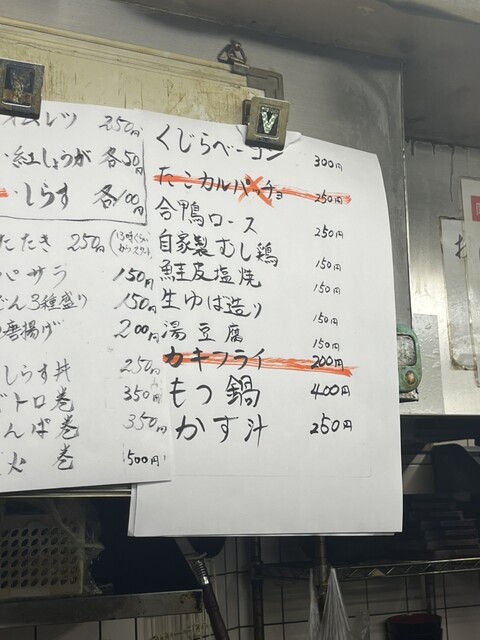 ムレツ 250円
紅しょうが 各50円
しらす 各100円
たたき 250円 (13時ぐらいからスタート)
パサラ 150円
どん3種盛り 150円
唐揚げ 200円
しらす丼 250円
トロ巻 350円
んぱ巻 350円
火巻 500円
くじらベーコン 300円
たこカルパッチョ 250円
合鴨ロース 250円
自家製むし鶏 150円
鮭皮塩焼 150円
生ゆば造り 150円
湯豆腐 150円
カキフライ 200円
もつ鍋 400円
かす汁 250円